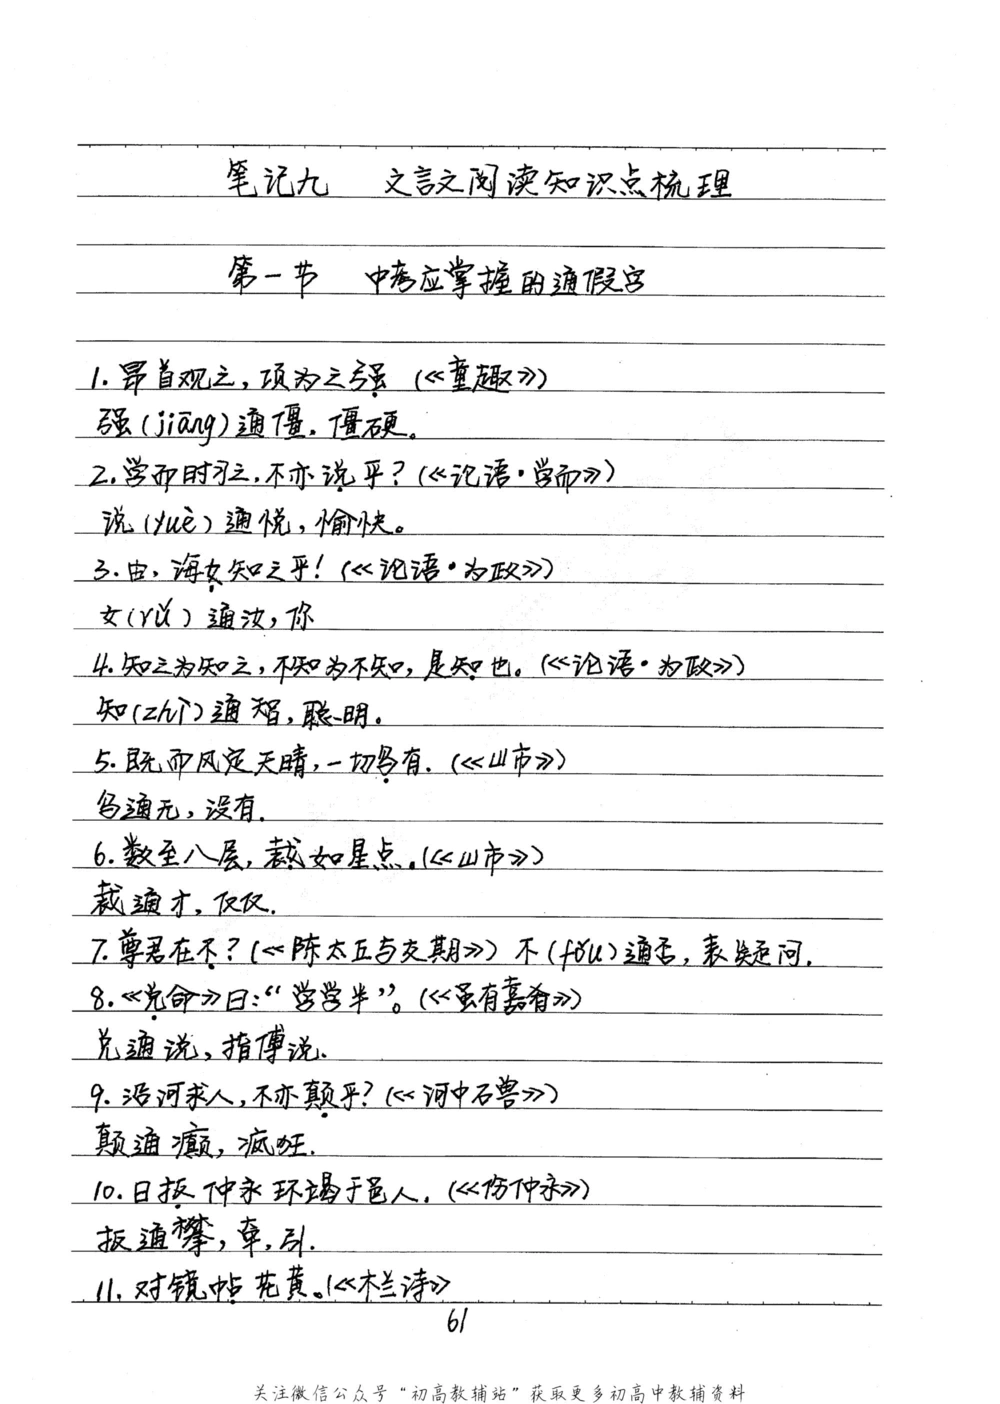 笔记九 文言文阅读知识点梳理
第一节 中考应掌握的通假字
1.昂首观之，项为之强（《童趣》）
强（jiāng）通僵，僵硬。
2.学而时习之，不亦说乎？（《论语·学而》）
说（yuè）通悦，愉快。
3.由，诲女知之乎！（《论语·为政》）
女（rǔ）通汝，你
4.知之为知之，不知为不知，是知也。（《论语·为政》）
知（zhì）通智，聪明。
5.既而风定天晴，一切乌有.（《山市》）
乌通无，没有.
6.数至八层，裁如星点.（《山市》）
裁通才，仅仅.
7.尊君在不？（《陈太丘与友期》）不（fǒu）通否，表疑问.
8.《兑命》曰：“学学半”。（《虽有嘉肴》）
兑通说，指傅说.
9.沿河求人，不亦颠乎？（《河中石兽》）
颠通癫，疯狂.
10.日扳仲永环谒于邑人.（《伤仲永》）
扳通攀，牵，引.
11.对镜帖花黄。（《木兰诗》
61
关注微信公众号“初高教辅站”获取更多初高中教辅资料